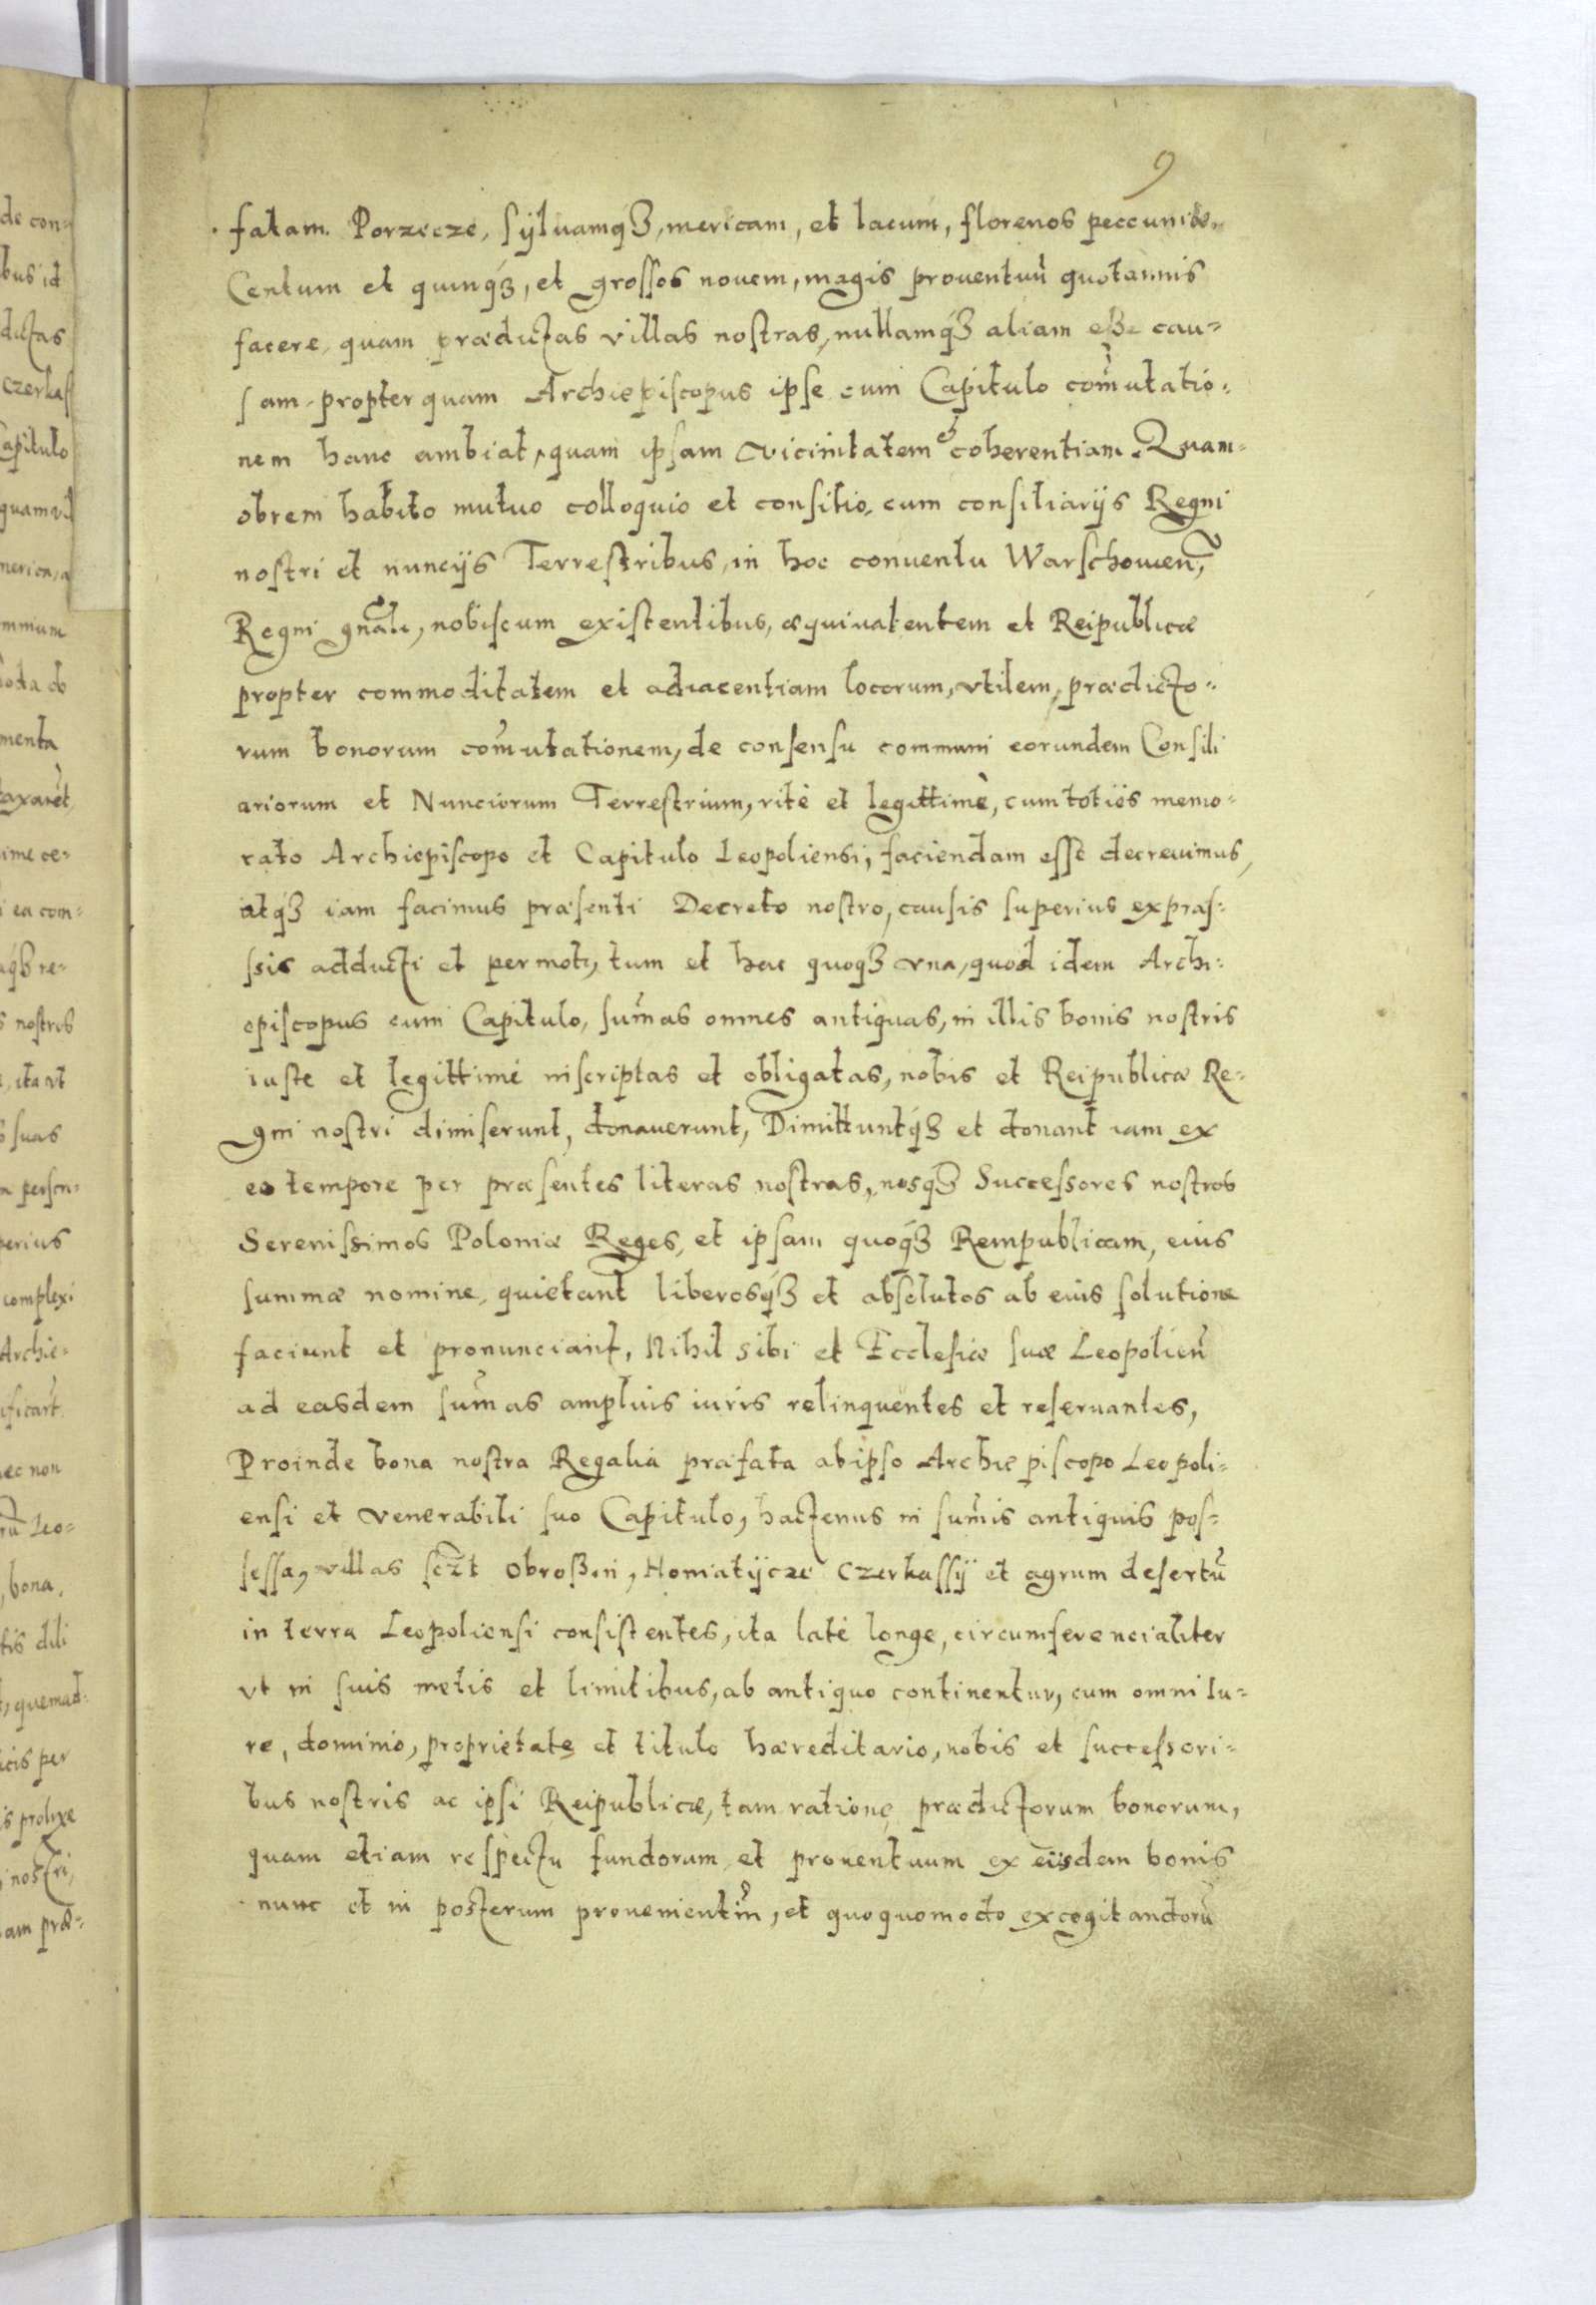 9
fatam. Porzecze, syluamq3, mericam, et lacum, florenos peccuniae
Centum et quinq3, et grossos nouem, magis prouentuũ quotannis
facere, quam praedictas villas nostras, nullamq3 aliam eße cau=
sam, propter quam Archiepiscopus ipse cum Capitulo com̃utatio=
nem hanc ambiat, quam ipsam vicinitatem et coherentiam. Quam=
obrem habito mutuo colloquio et consilio, cum consiliarijs Regni
nostri et nuncijs Terrestribus, in hoc conuentu Warschouien̄,
Regni gñali, nobiscum existentibus, aequiualentem et Reipublicae
propter commoditatem et adiacentiam locorum, vtilem, praedicto=
rum bonorum com̃utationem, de consensu communi eorundem Consili
ariorum et Nunciorum Terrestrium, ritè et legittimè, cum toties memo=
rato Archiepiscopo et Capitulo Leopoliensi, faciendam esse decreuimus,
atq3 iam facimus praesenti Decreto nostro, causis superius expraes=
ssis adducti et permoti, tum et hac quoq3 vna, quod idem Archi=
episcopus cum Capitulo, sum̃as omnes antiquas, in illis bonis nostris
iuste et legittimé inscriptas et obligatas, nobis et Reipublicae Re=
gni nostri dimiserunt, donauerunt, Dimittuntq3 et donant iam ex
eo tempore per praesentes literas nostras, nosq3 Successores nostros
Serenissimos Poloniae Reges, et ipsam quoq3 Rempublicam, eius
summae nomine, quietant liberosq3 et absolutos ab eius solutione
faciunt et pronunciant, Nihil sibi et Ecclesiae suae Leopolien̄
ad easdem sum̃as amplius iuris relinquentes et reseruantes,
Proinde bona nostra Regalia praefata ab ipso Archiepiscopo Leopoli=
ensi et venerabili suo Capitulo, hactenus in sum̃is antiquis pos=
sessa, villas sczt Obroßin, Homatijcze Czerkassij et agrum desertũ
in terra Leopoliensi consistentes, ita laté longe, circumferencialiter
vt in suis metis et limitibus, ab antiquo continentur, cum omni Iu=
re, dominio, proprietate et titulo haereditario, nobis et successori=
bus nostris ac ipsi Reipublicae, tam ratione praedictorum bonorum,
quam etiam respectu fundorum et prouentuum ex eisdem bonis
nunc et in posterum prouenientiũ, et quoquomodo excogitandorũ